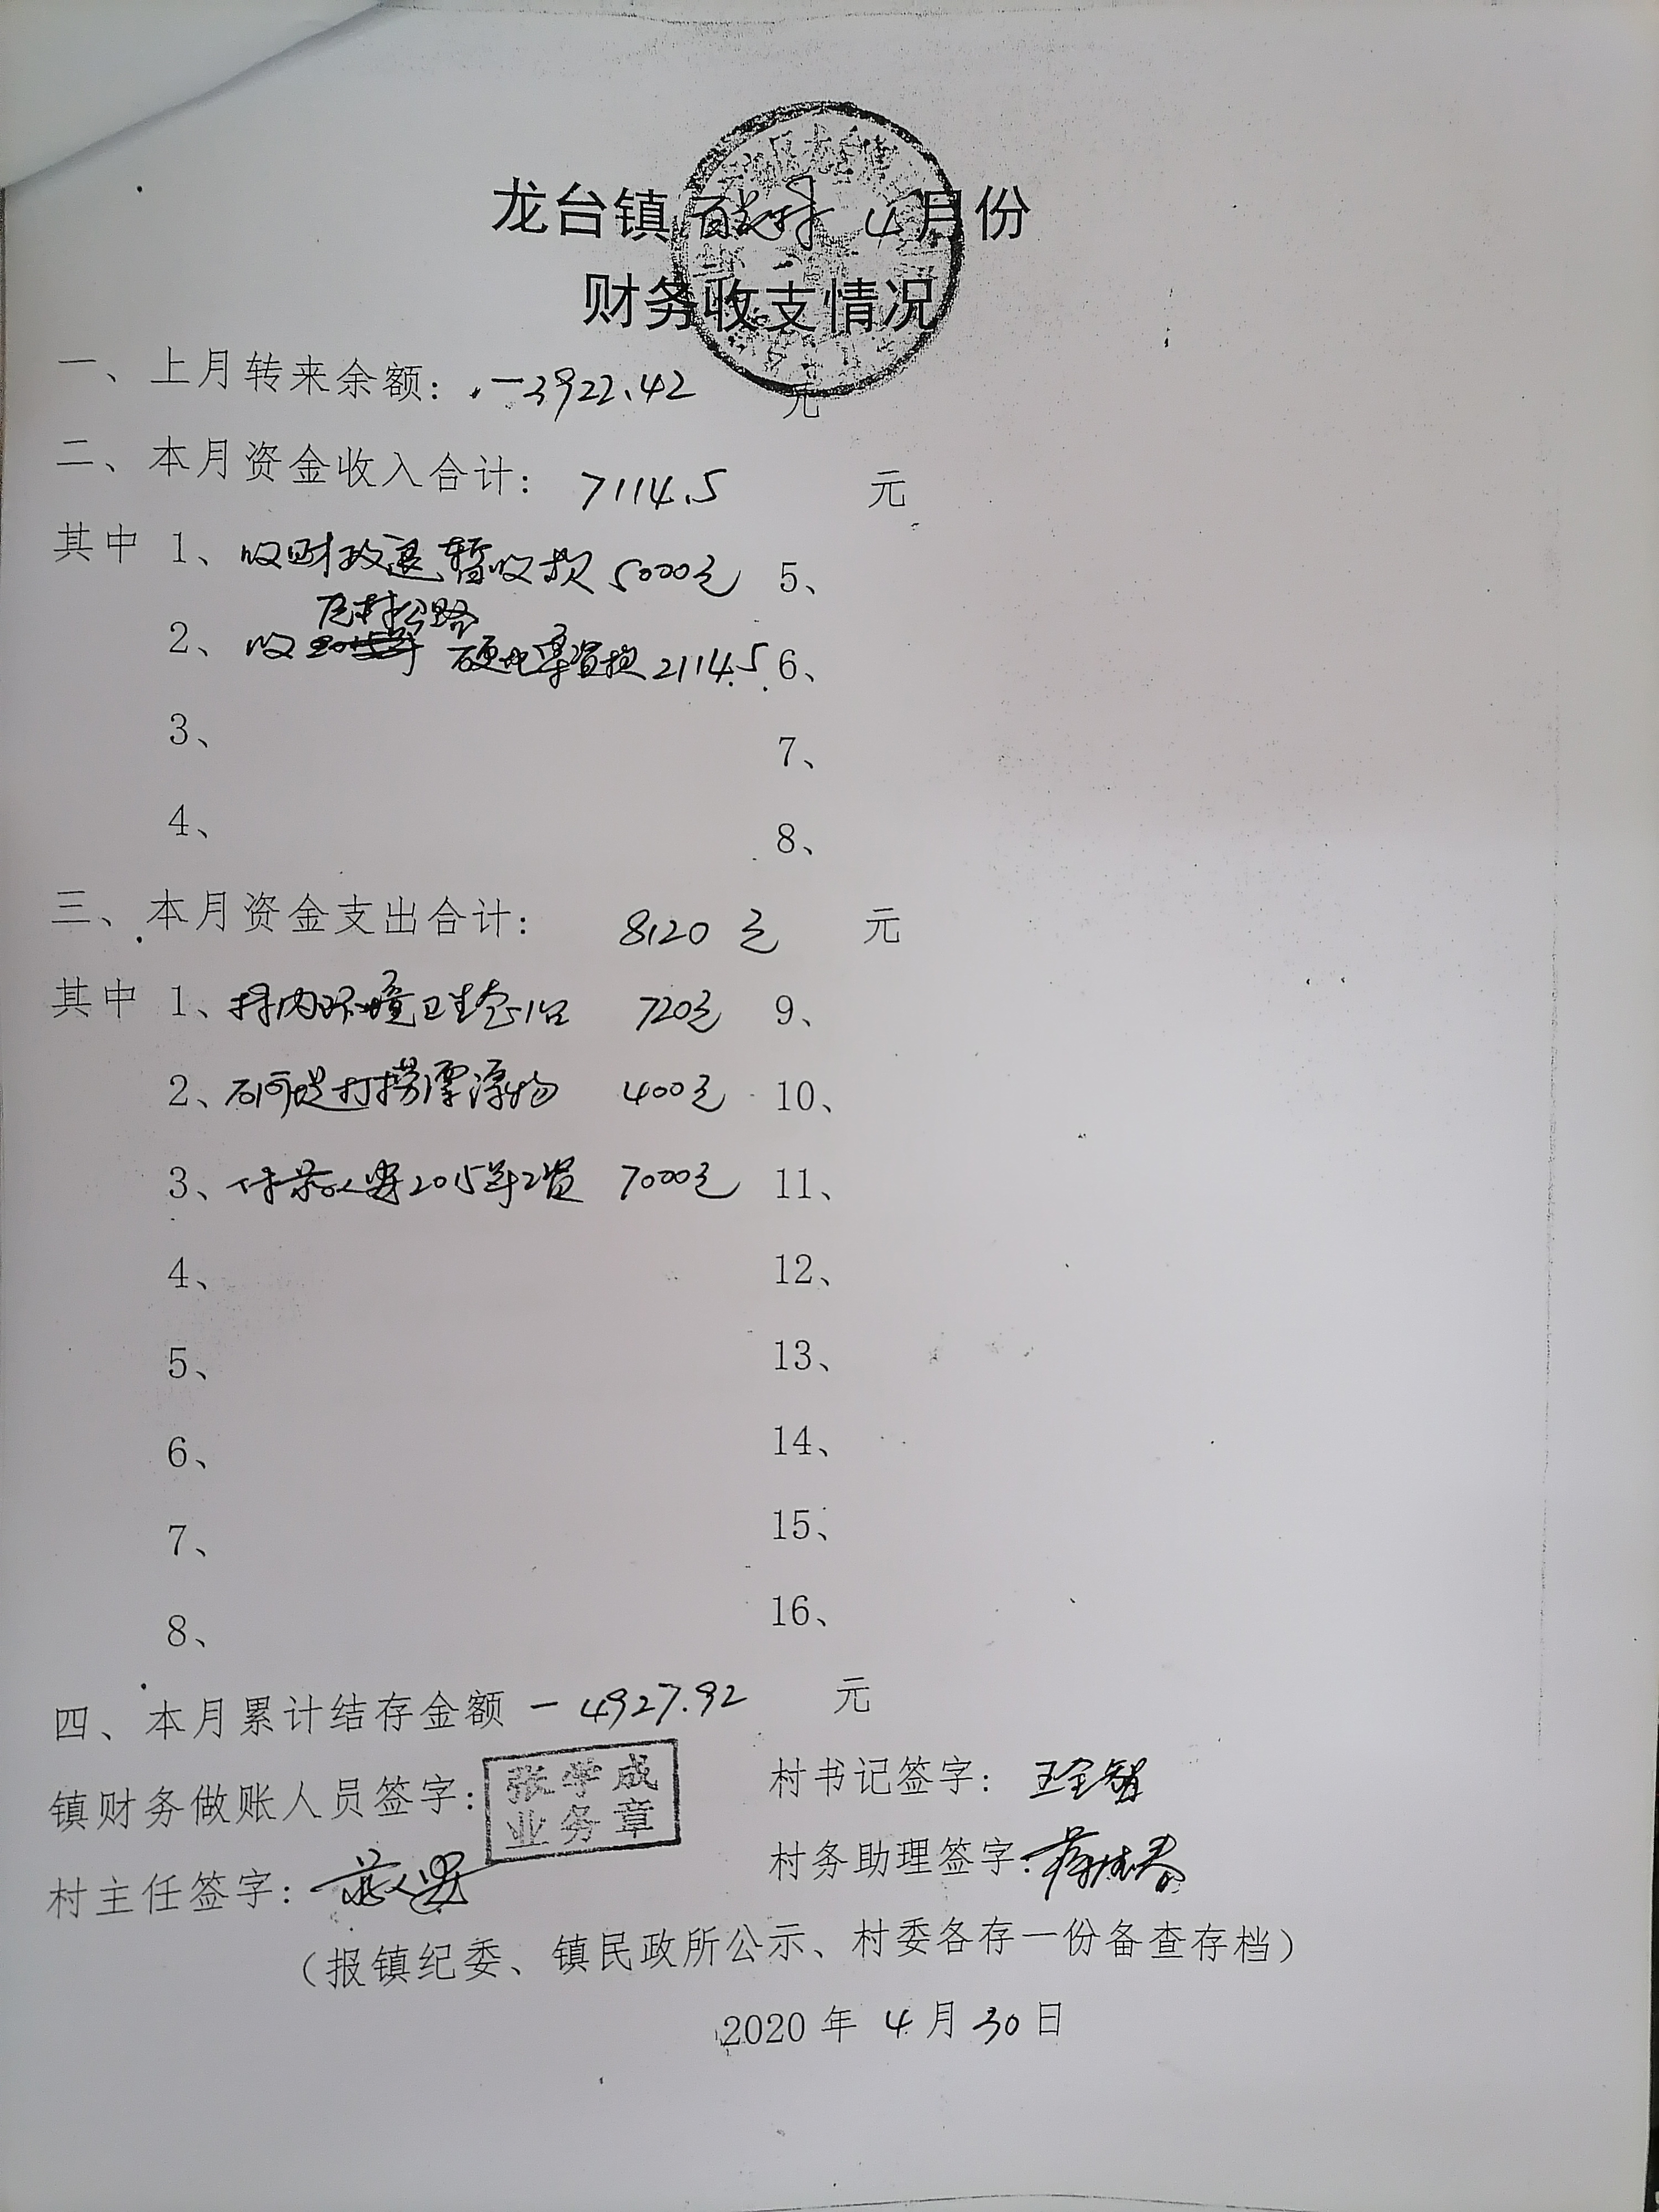 龙台镇 村 4月份
财务收支情况
一、上月转来余额: -3922.42 元
二、本月资金收入合计: 7114.5 元
其中 1、收财政退暂收款 5000元 5、
瓦村公路
2、收 硬化筹资款 2114.5 6、
3、 7、
4、 8、
三、本月资金支出合计: 8120 元 元
其中 1、村内环境卫生整治 720元 9、
2、石河堤打捞漂浮物 400元 10、
3、付 2015年工资 7000元 11、
4、 12、
5、 13、
6、 14、
7、 15、
8、 16、
四、本月累计结存金额 -4927.92 元
镇财务做账人员签字: 张学成 业务章 村书记签字:
村主任签字: 村务助理签字:
(报镇纪委、镇民政所公示、村委各存一份备查存档)
2020年 4月30日